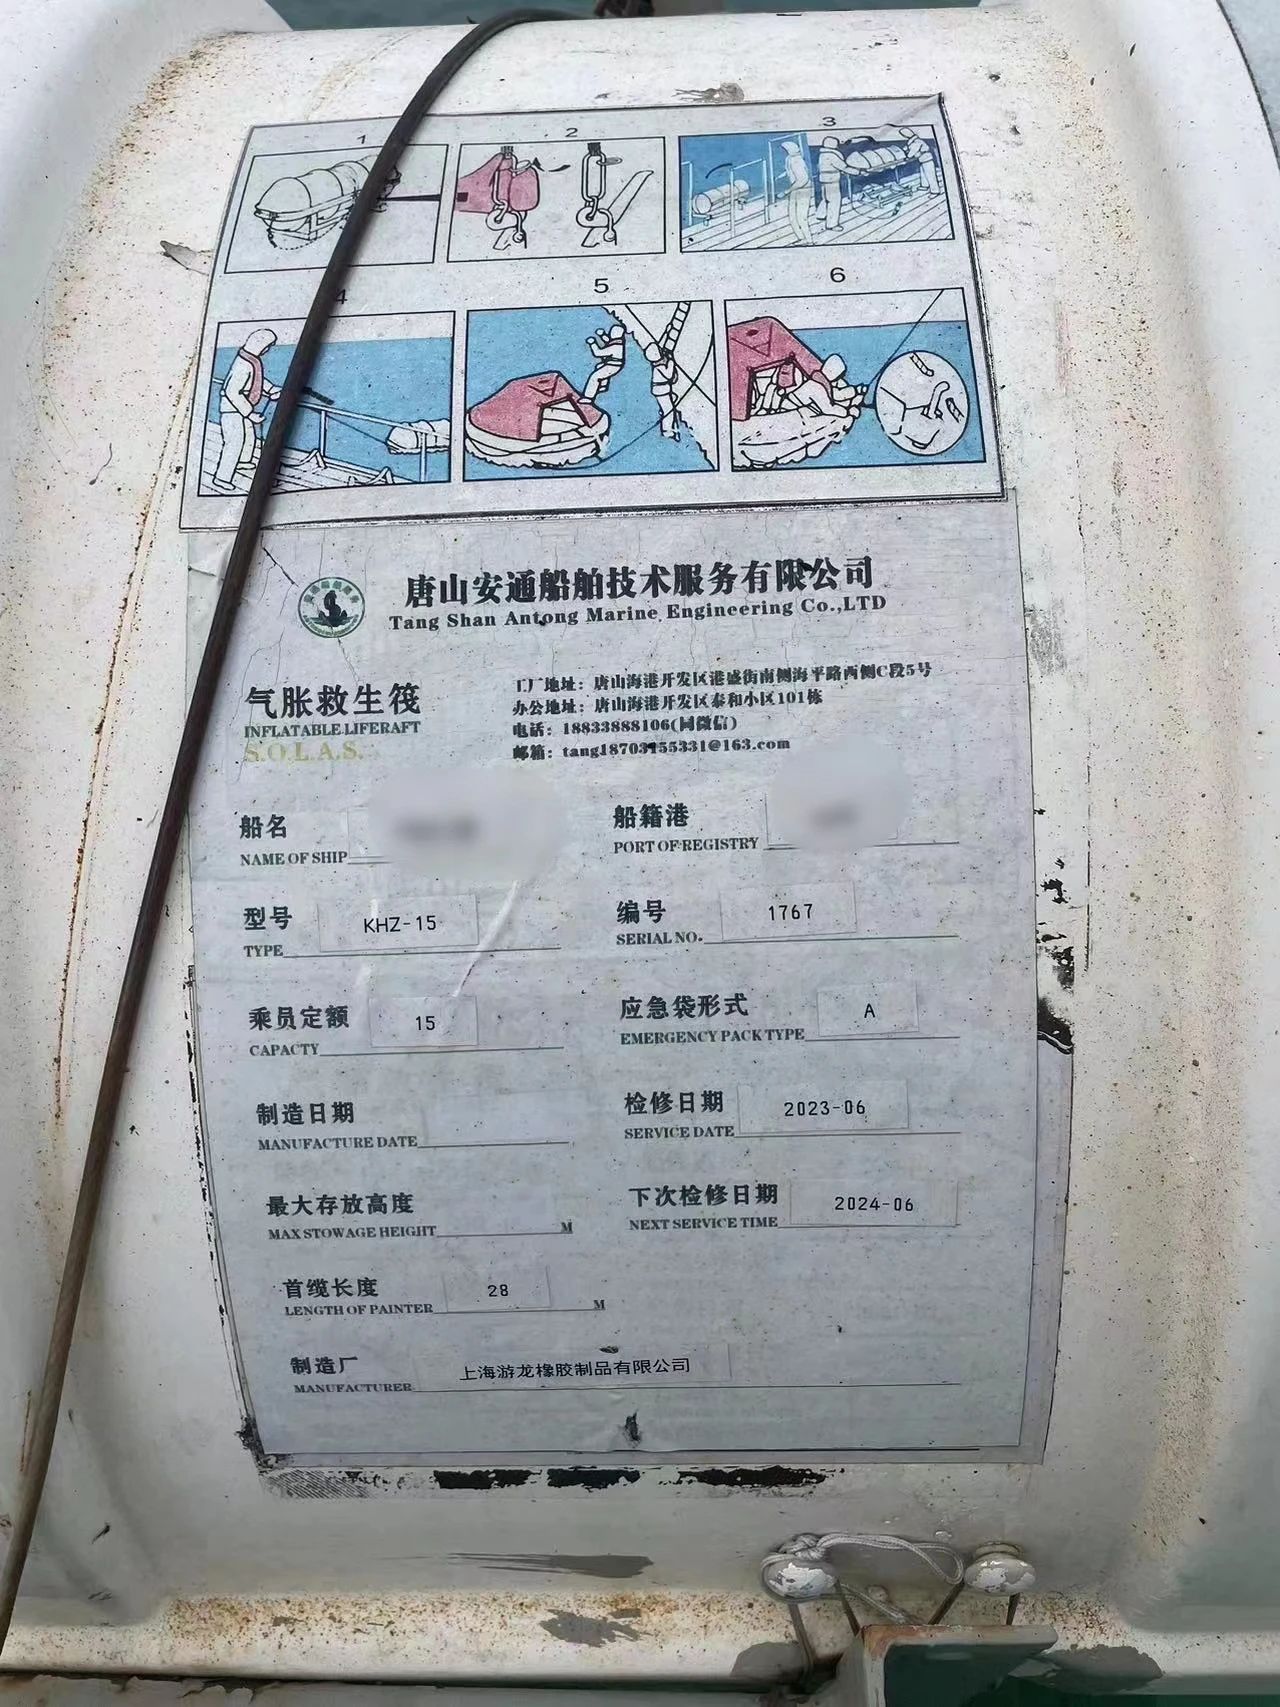 1
2
3
4
5
6
唐山安通船舶技术服务有限公司
Tang Shan Antong Marine Engineering Co.,LTD
气胀救生筏
INFLATABLE LIFERAFT
S.O.L.A.S.
工厂地址：唐山海港开发区港盛街南侧海平路西侧C段5号
办公地址：唐山海港开发区泰和小区101栋
电话：18833888106(同微信)
邮箱：
船名
NAME OF SHIP
船籍港
PORT OF REGISTRY
型号 KHZ-15
TYPE
编号 1767
SERIAL NO.
乘员定额 15
CAPACTY
应急袋形式 A
EMERGENCY PACK TYPE
制造日期
MANUFACTURE DATE
检修日期 2023-06
SERVICE DATE
最大存放高度
MAX STOWAGE HEIGHT M
下次检修日期 2024-06
NEXT SERVICE TIME
首缆长度 28
LENGTH OF PAINTER M
制造厂 上海游龙橡胶制品有限公司
MANUFACTURER